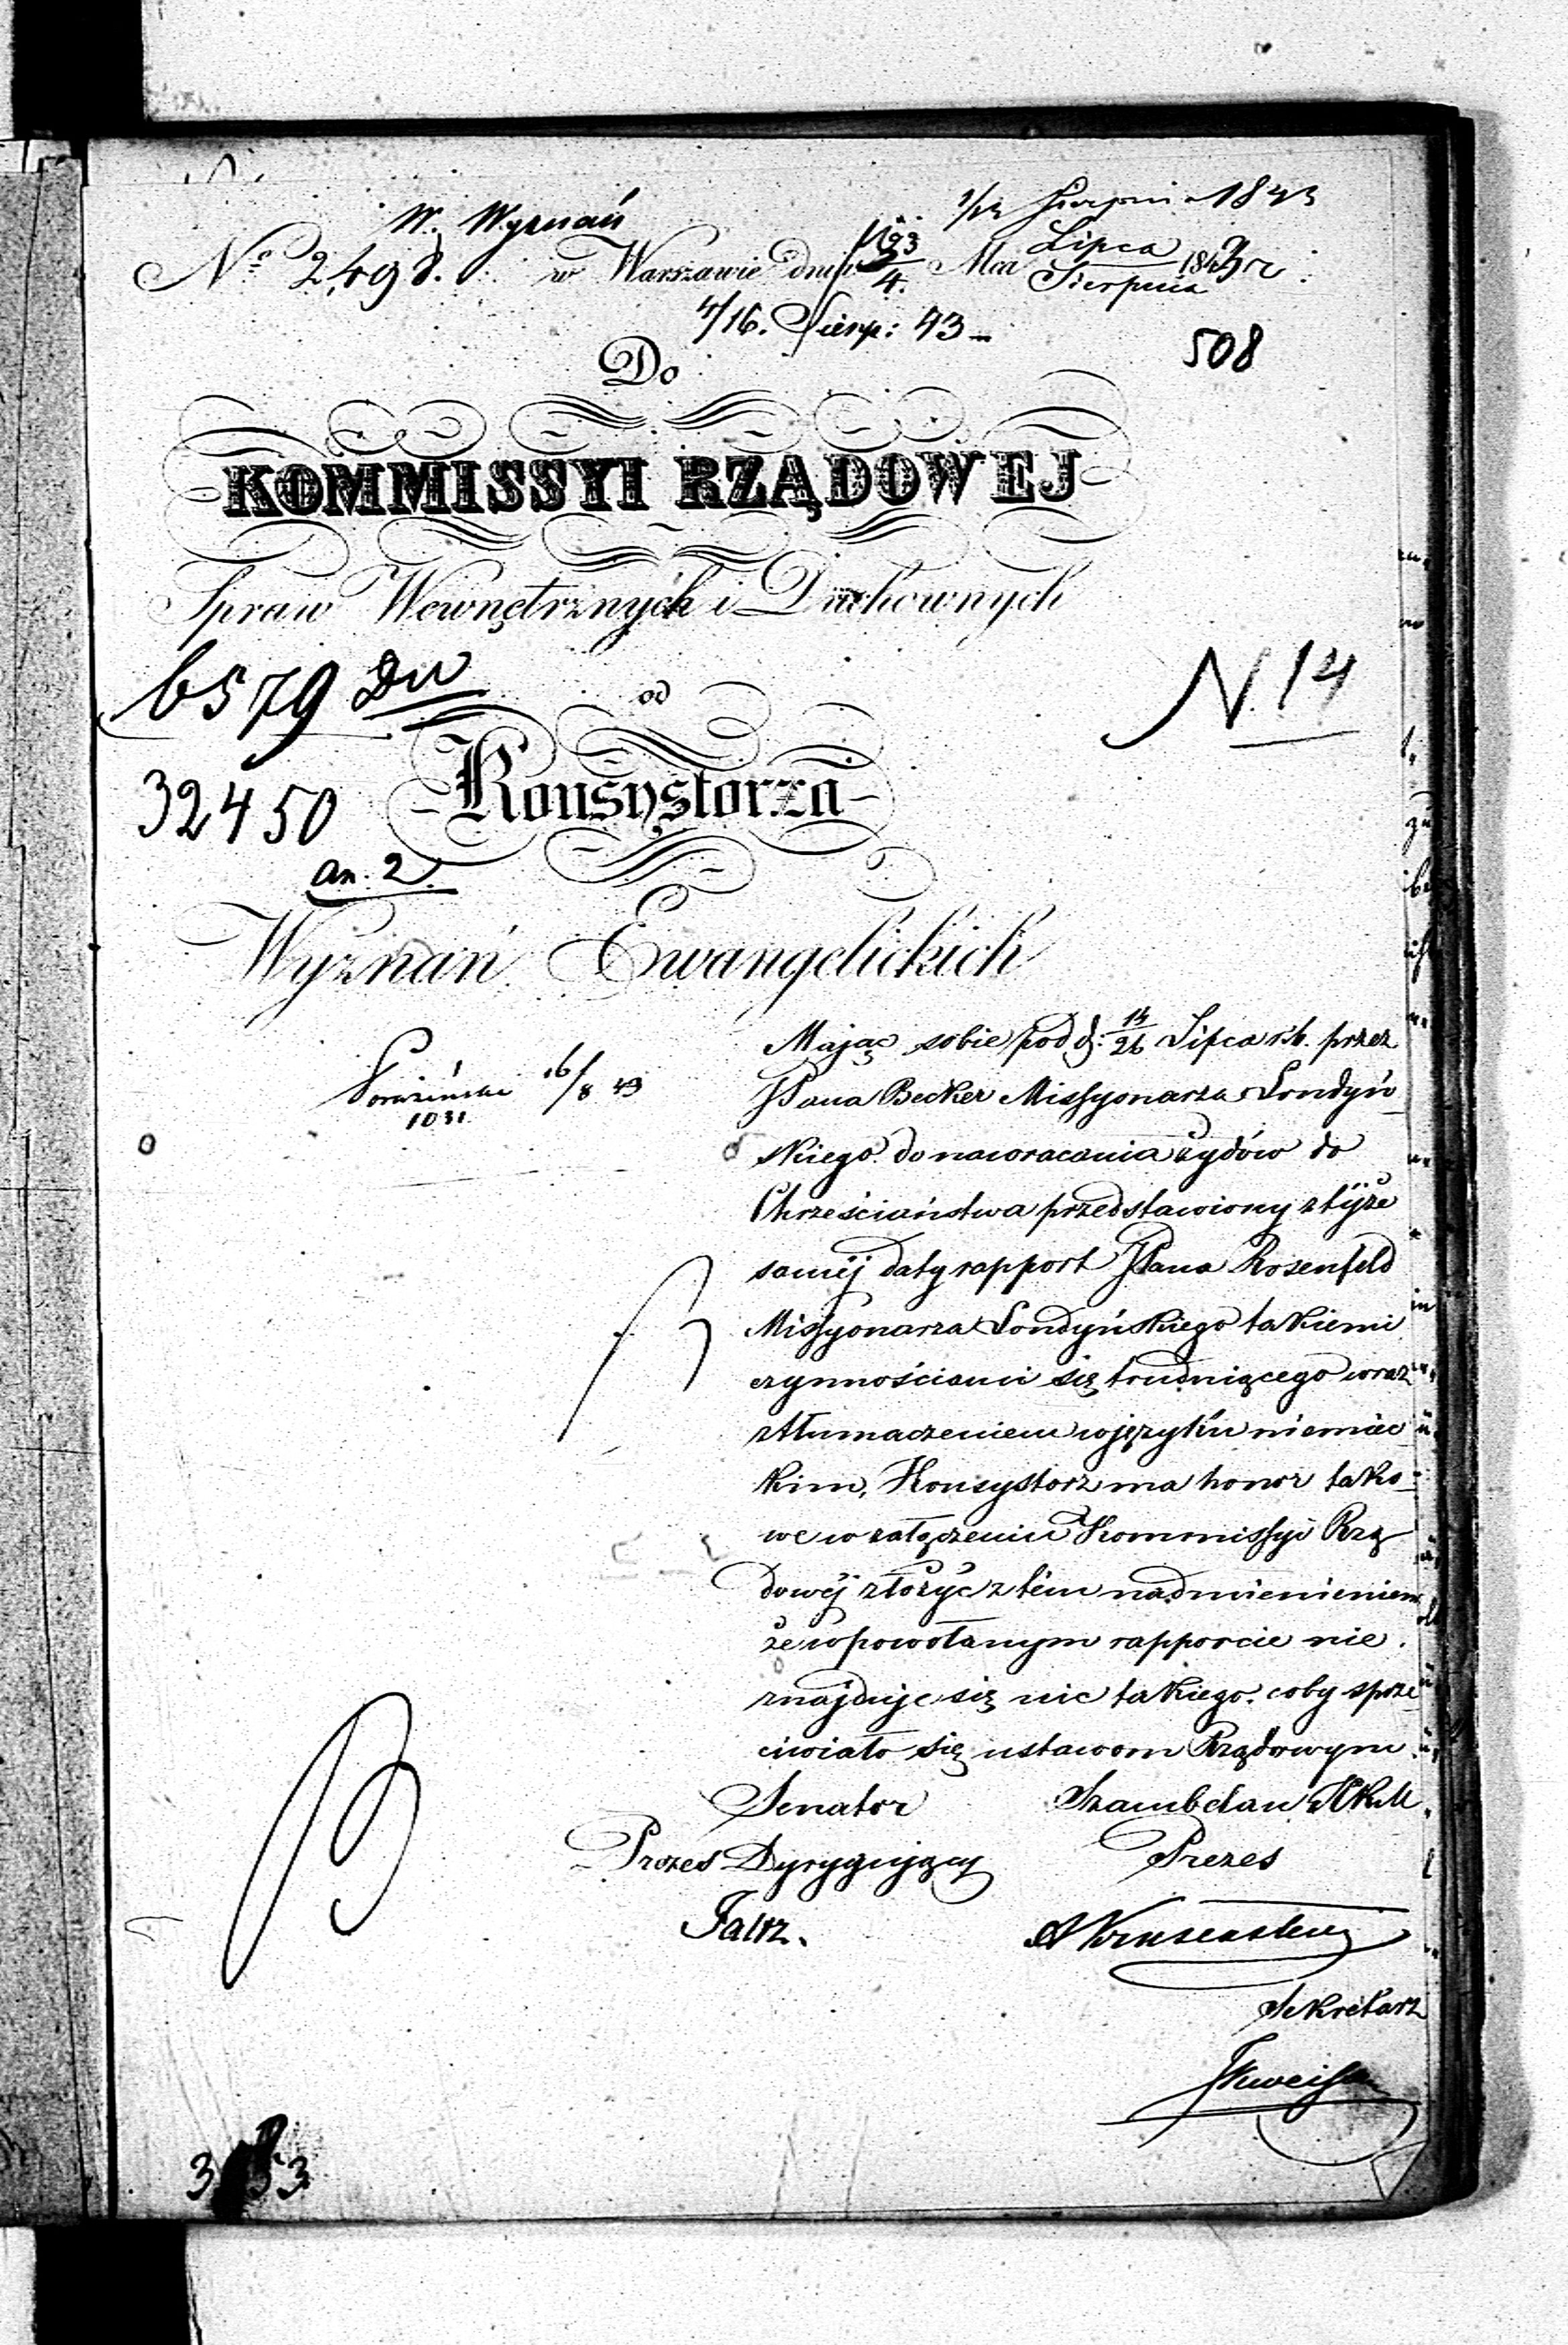 W. Wyznań
1/13 Sierpnia 1843
No 2,498. w Warszawie dnia 23/4. Mca Lipca/Sierpnia 1843 r.
4/16. Sierp: 43
508
Do
KOMMISSYI RZĄDOWEJ
Spraw Wewnętrznych i Duchownych
6579 DW
od
N. 14
Konsystorza
32450
an. 2.
Wyznań Ewangelickich
Mając sobie pod d: 14/26 Lipca r. b. przez
16/8 43
JPana Becker Missyonarza Londyń
1031.
skiego do nawracania żydów do
Chrześciaństwa przedstawiony z téjże
saméj daty rapport JPana Rosenfeld
Missyonarza Londyńskiego takiemi
czynnościami się trudniącego wraz
z tłumaczeniem w języku niemiec
kim, Konsystorz ma honor tako-
we w załączeniu Kommissyi Rzą
dowéj złożyć z tém nadmienieniem
że w powołanym rapporcie nie
znajduje się nic takiego coby sprze
ciwiało się ustawom Rządowym.
Senator Szambelan
Prezes Dyrygujący Prezes
Sekretarz